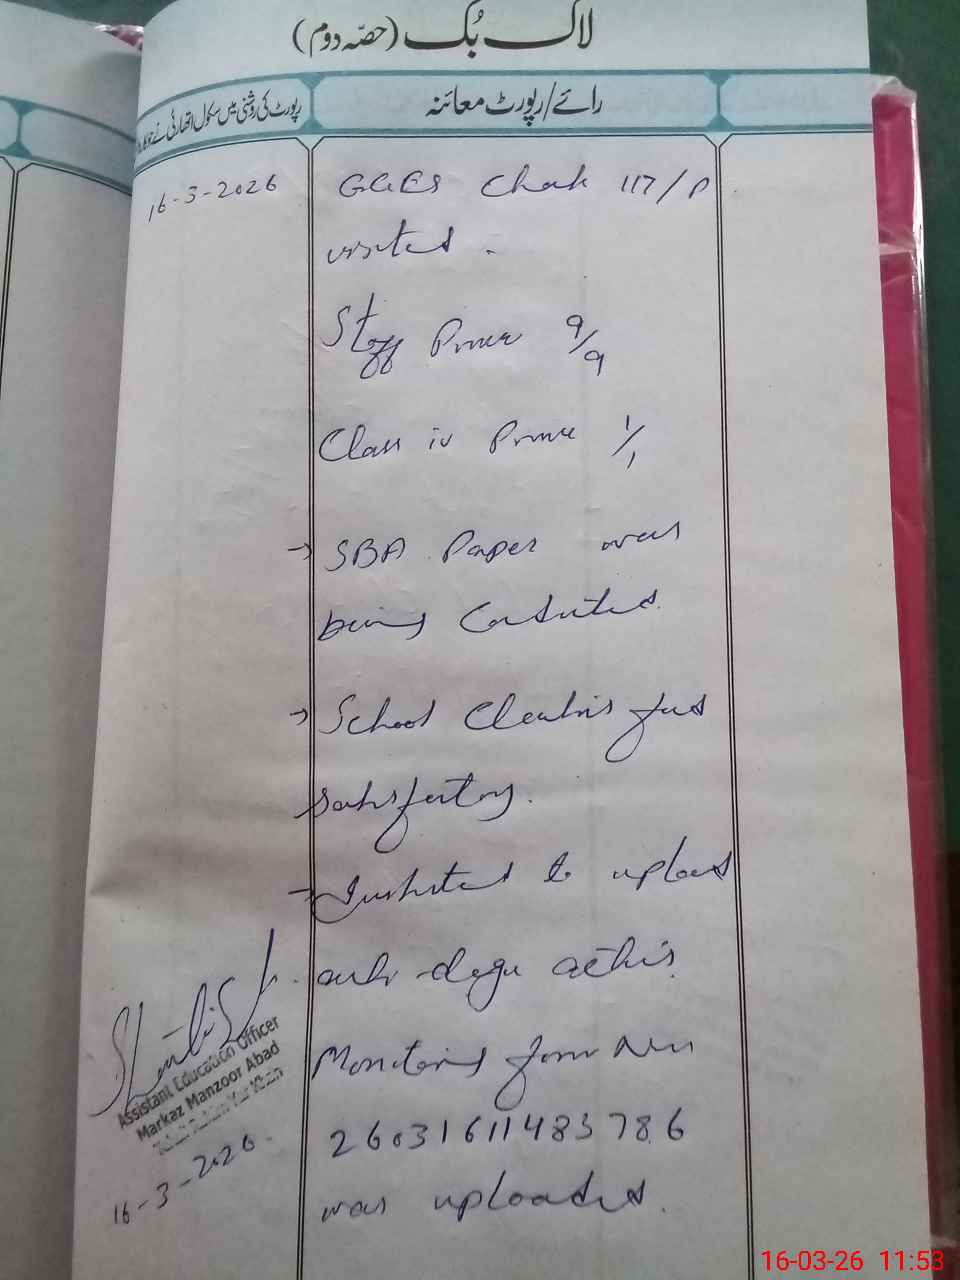 لاگ بُک (حصّہ دوم)
رپورٹ کی روشنی میں سکول اتھارٹی نے جو
رائے/رپورٹ معائنہ
16-3-2026
GGES Chak 117/P
visited.
Staff 9/9
Class iv 1/1
→ SBA Paper was
being
→ School
satisfactory.
→ to upload
anti-dengue
Monitoring form
26031611483786
was uploaded.
Assistant Education Officer
Markaz Manzoor Abad
16-3-2026.
16-03-26 11:53